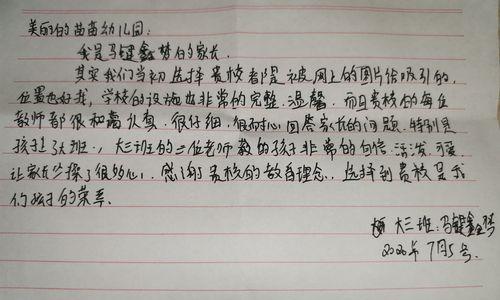 美丽的苗苗幼儿园:
我是马键鑫梦的家长.
其实我们当初选择贵校都是被网上的图片给吸引的,
位置也好找,学校的设施也非常的完整.温馨.而且贵校的每位
教师都很和蔼认真.很仔细,很耐心回答家长的问题.特别是
孩子上大班.,大三班的三位老师教的孩子非常的自信.活泼.可爱
让家长少操了很多心,感谢贵校的教育理念,选择到贵校是我
们孩子的荣幸.
大三班:马键鑫梦
2020年7月5号.